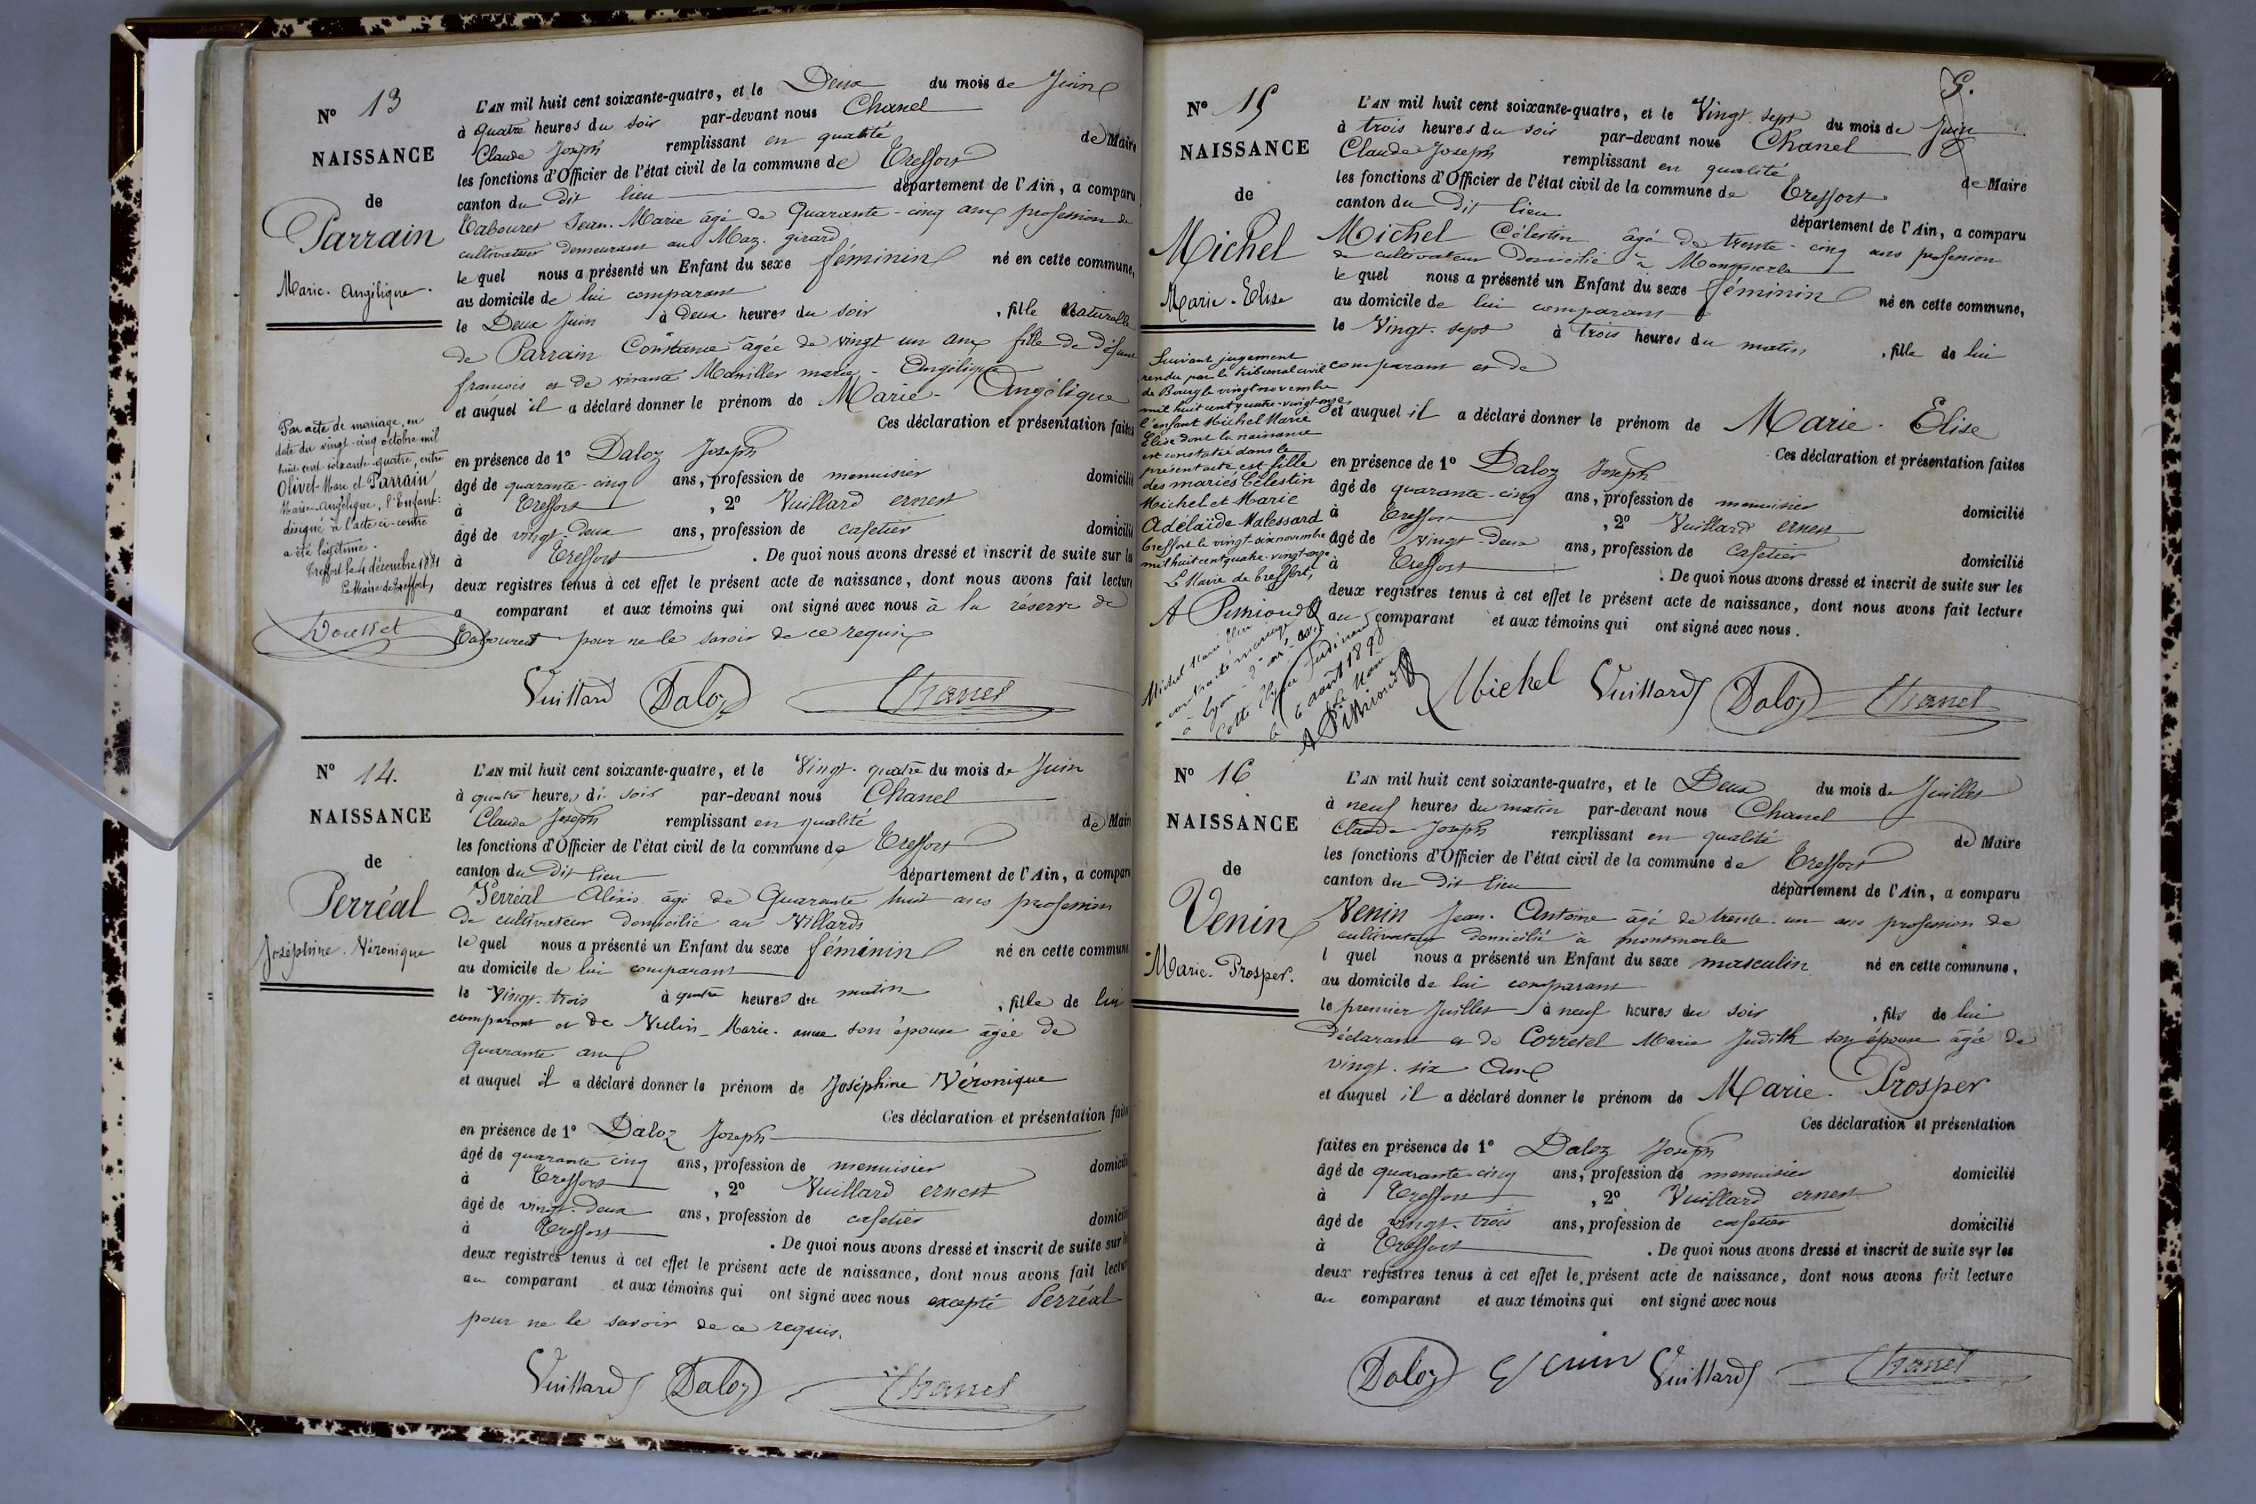 N° 13
NAISSANCE
de
Parrain
Marie-Angélique.
L'AN mil huit cent soixante-quatre, et le Deux du mois de Juin
à quatre heures du soir par-devant nous Chanel
Claude Joseph remplissant en qualité de Maire
les fonctions d'Officier de l'état civil de la commune de Treffort
canton du dit lieu département de l'Ain, a comparu
Tabouret Jean-Marie âgé de Quarante-cinq ans profession de
cultivateur demeurant au Maz. girard
le quel nous a présenté un Enfant du sexe féminin né en cette commune,
au domicile de lui comparant
le Deux Juin à deux heures du soir, fille Naturelle
de Parrain Constance âgée de vingt un ans fille de défunt
francois et de vivante Maniller marie-Angélique
et auquel il a déclaré donner le prénom de Marie-Angélique
Ces déclaration et présentation faites
en présence de 1° Daloz Joseph
âgé de quarante-cinq ans, profession de menuisier domicilié
à Treffort, 2° Vuillard ernest
âgé de vingt-deux ans, profession de cafetier domicilié
à Treffort. De quoi nous avons dressé et inscrit de suite sur les
deux registres tenus à cet effet le présent acte de naissance, dont nous avons fait lecture
a comparant et aux témoins qui ont signé avec nous à la réserve de
Tabouret pour ne le savoir de ce requis
Vuillard Daloz Chanel
Par acte de mariage, en
date du vingt-cinq octobre mil
huit cent soixante-quatre, entre
Olivet Marc et Parrain
Marie-Angélique, l'Enfant
désigné à l'acte ci-contre
a été légitimé.
Treffort le 4 décembre 1881
Le Maire de Treffort,
Doullet
N° 14.
NAISSANCE
de
Perréal
Joséphine-Véronique
L'AN mil huit cent soixante-quatre, et le Vingt-quatre du mois de Juin
à quatre heures du soir par-devant nous Chanel
Claude Joseph remplissant en qualité de Maire
les fonctions d'Officier de l'état civil de la commune de Treffort
canton du dit lieu département de l'Ain, a comparu
Perréal Alexis âgé de Quarante huit ans profession
de cultivateur domicilié au Villards
le quel nous a présenté un Enfant du sexe féminin né en cette commune
au domicile de lui comparant
le Vingt-trois à quatre heures du matin, fille de lui
comparant et de Vullin-Marie-anne son épouse âgée de
Quarante ans
et auquel il a déclaré donner le prénom de Joséphine Véronique
Ces déclaration et présentation faites
en présence de 1° Daloz Joseph
âgé de quarante cinq ans, profession de menuisier domicilié
à Treffort, 2° Vuillard ernest
âgé de vingt-deux ans, profession de cafetier domicilié
à Treffort. De quoi nous avons dressé et inscrit de suite sur les
deux registres tenus à cet effet le présent acte de naissance, dont nous avons fait lecture
au comparant et aux témoins qui ont signé avec nous excepté Perréal
pour ne le savoir de ce requis.
Vuillard Daloz Chanel
N° 15
NAISSANCE
de
Michel
Marie-Elise
L'AN mil huit cent soixante-quatre, et le Vingt-sept du mois de Juin
à trois heures du soir par-devant nous Chanel
Claude Joseph remplissant en qualité de Maire
les fonctions d'Officier de l'état civil de la commune de Treffort
canton du dit lieu département de l'Ain, a comparu
Michel Célestin âgé de trente-cinq ans profession
de cultivateur Domicilié à Montmerle
le quel nous a présenté un Enfant du sexe féminin né en cette commune,
au domicile de lui comparant
le Vingt-sept à trois heures du matin, fille de lui
comparant et de
et auquel il a déclaré donner le prénom de Marie-Elise
Ces déclaration et présentation faites
en présence de 1° Daloz Joseph
âgé de quarante-cinq ans, profession de menuisier domicilié
à Treffort, 2° Vuillard ernest
âgé de vingt-deux ans, profession de cafetier domicilié
à Treffort. De quoi nous avons dressé et inscrit de suite sur les
deux registres tenus à cet effet le présent acte de naissance, dont nous avons fait lecture
au comparant et aux témoins qui ont signé avec nous.
Michel Vuillard Daloz Chanel
Suivant jugement
rendu par le tribunal civil
de Bourg le vingt novembre
mil huit cent quatre-vingt-onze
l'enfant Michel Marie
Elise dont la naissance
est constatée dans le
présent acte, est fille
des mariés Célestin
Michel et Marie
Adélaïde Malessard
Treffort le vingt-six novembre
mil huit cent quatre-vingt-onze
Le Maire de Treffort,
Michel Marie Elise
a contracté mariage
à Lyon
le 6 août 1898
Le Maire
N° 16
NAISSANCE
de
Venin
Marie-Prosper.
L'AN mil huit cent soixante-quatre, et le Deux du mois de Juillet
à neuf heures du matin par-devant nous Chanel
Claude-Joseph remplissant en qualité de Maire
les fonctions d'Officier de l'état civil de la commune de Treffort
canton du dit lieu département de l'Ain, a comparu
Venin Jean-Antoine âgé de trente-un ans profession de
cultivateur domicilié à montmerle
l quel nous a présenté un Enfant du sexe masculin né en cette commune,
au domicile de lui comparant
le premier Juillet à neuf heures du soir, fils de lui
déclarant et de Corretel Marie Judith son épouse âgée de
vingt-six ans
et auquel il a déclaré donner le prénom de Marie-Prosper
Ces déclaration et présentation
faites en présence de 1° Daloz Joseph
âgé de quarante-cinq ans, profession de menuisier domicilié
à Treffort, 2° Vuillard ernest
âgé de vingt-trois ans, profession de cafetier domicilié
à Treffort. De quoi nous avons dressé et inscrit de suite sur les
deux registres tenus à cet effet le présent acte de naissance, dont nous avons fait lecture
au comparant et aux témoins qui ont signé avec nous
Daloz Vuillard Chanel